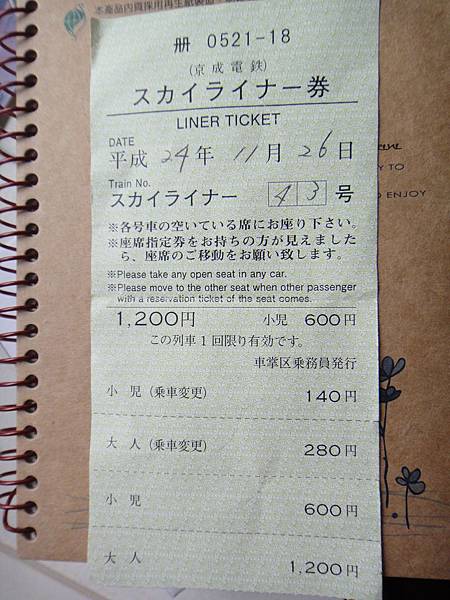 本產品內頁採用再生紙製品
冊 0521-18
(京成電鉄)
スカイライナー券
LINER TICKET
DATE
平成 24年 11月 26日
Train No.
スカイライナー 43号
※各号車の空いている席にお座り下さい。
※座席指定券をお持ちの方が見えました
ら、座席のご移動をお願い致します。
※Please take any open seat in any car.
※Please move to the other seat when other passenger
with a reservation ticket of the seat comes.
1,200円 小児 600円
この列車1回限り有効です。
車掌区乗務員発行
小児(乗車変更) 140円
大人(乗車変更) 280円
小児 600円
大人 1,200円
TO
ENJOY